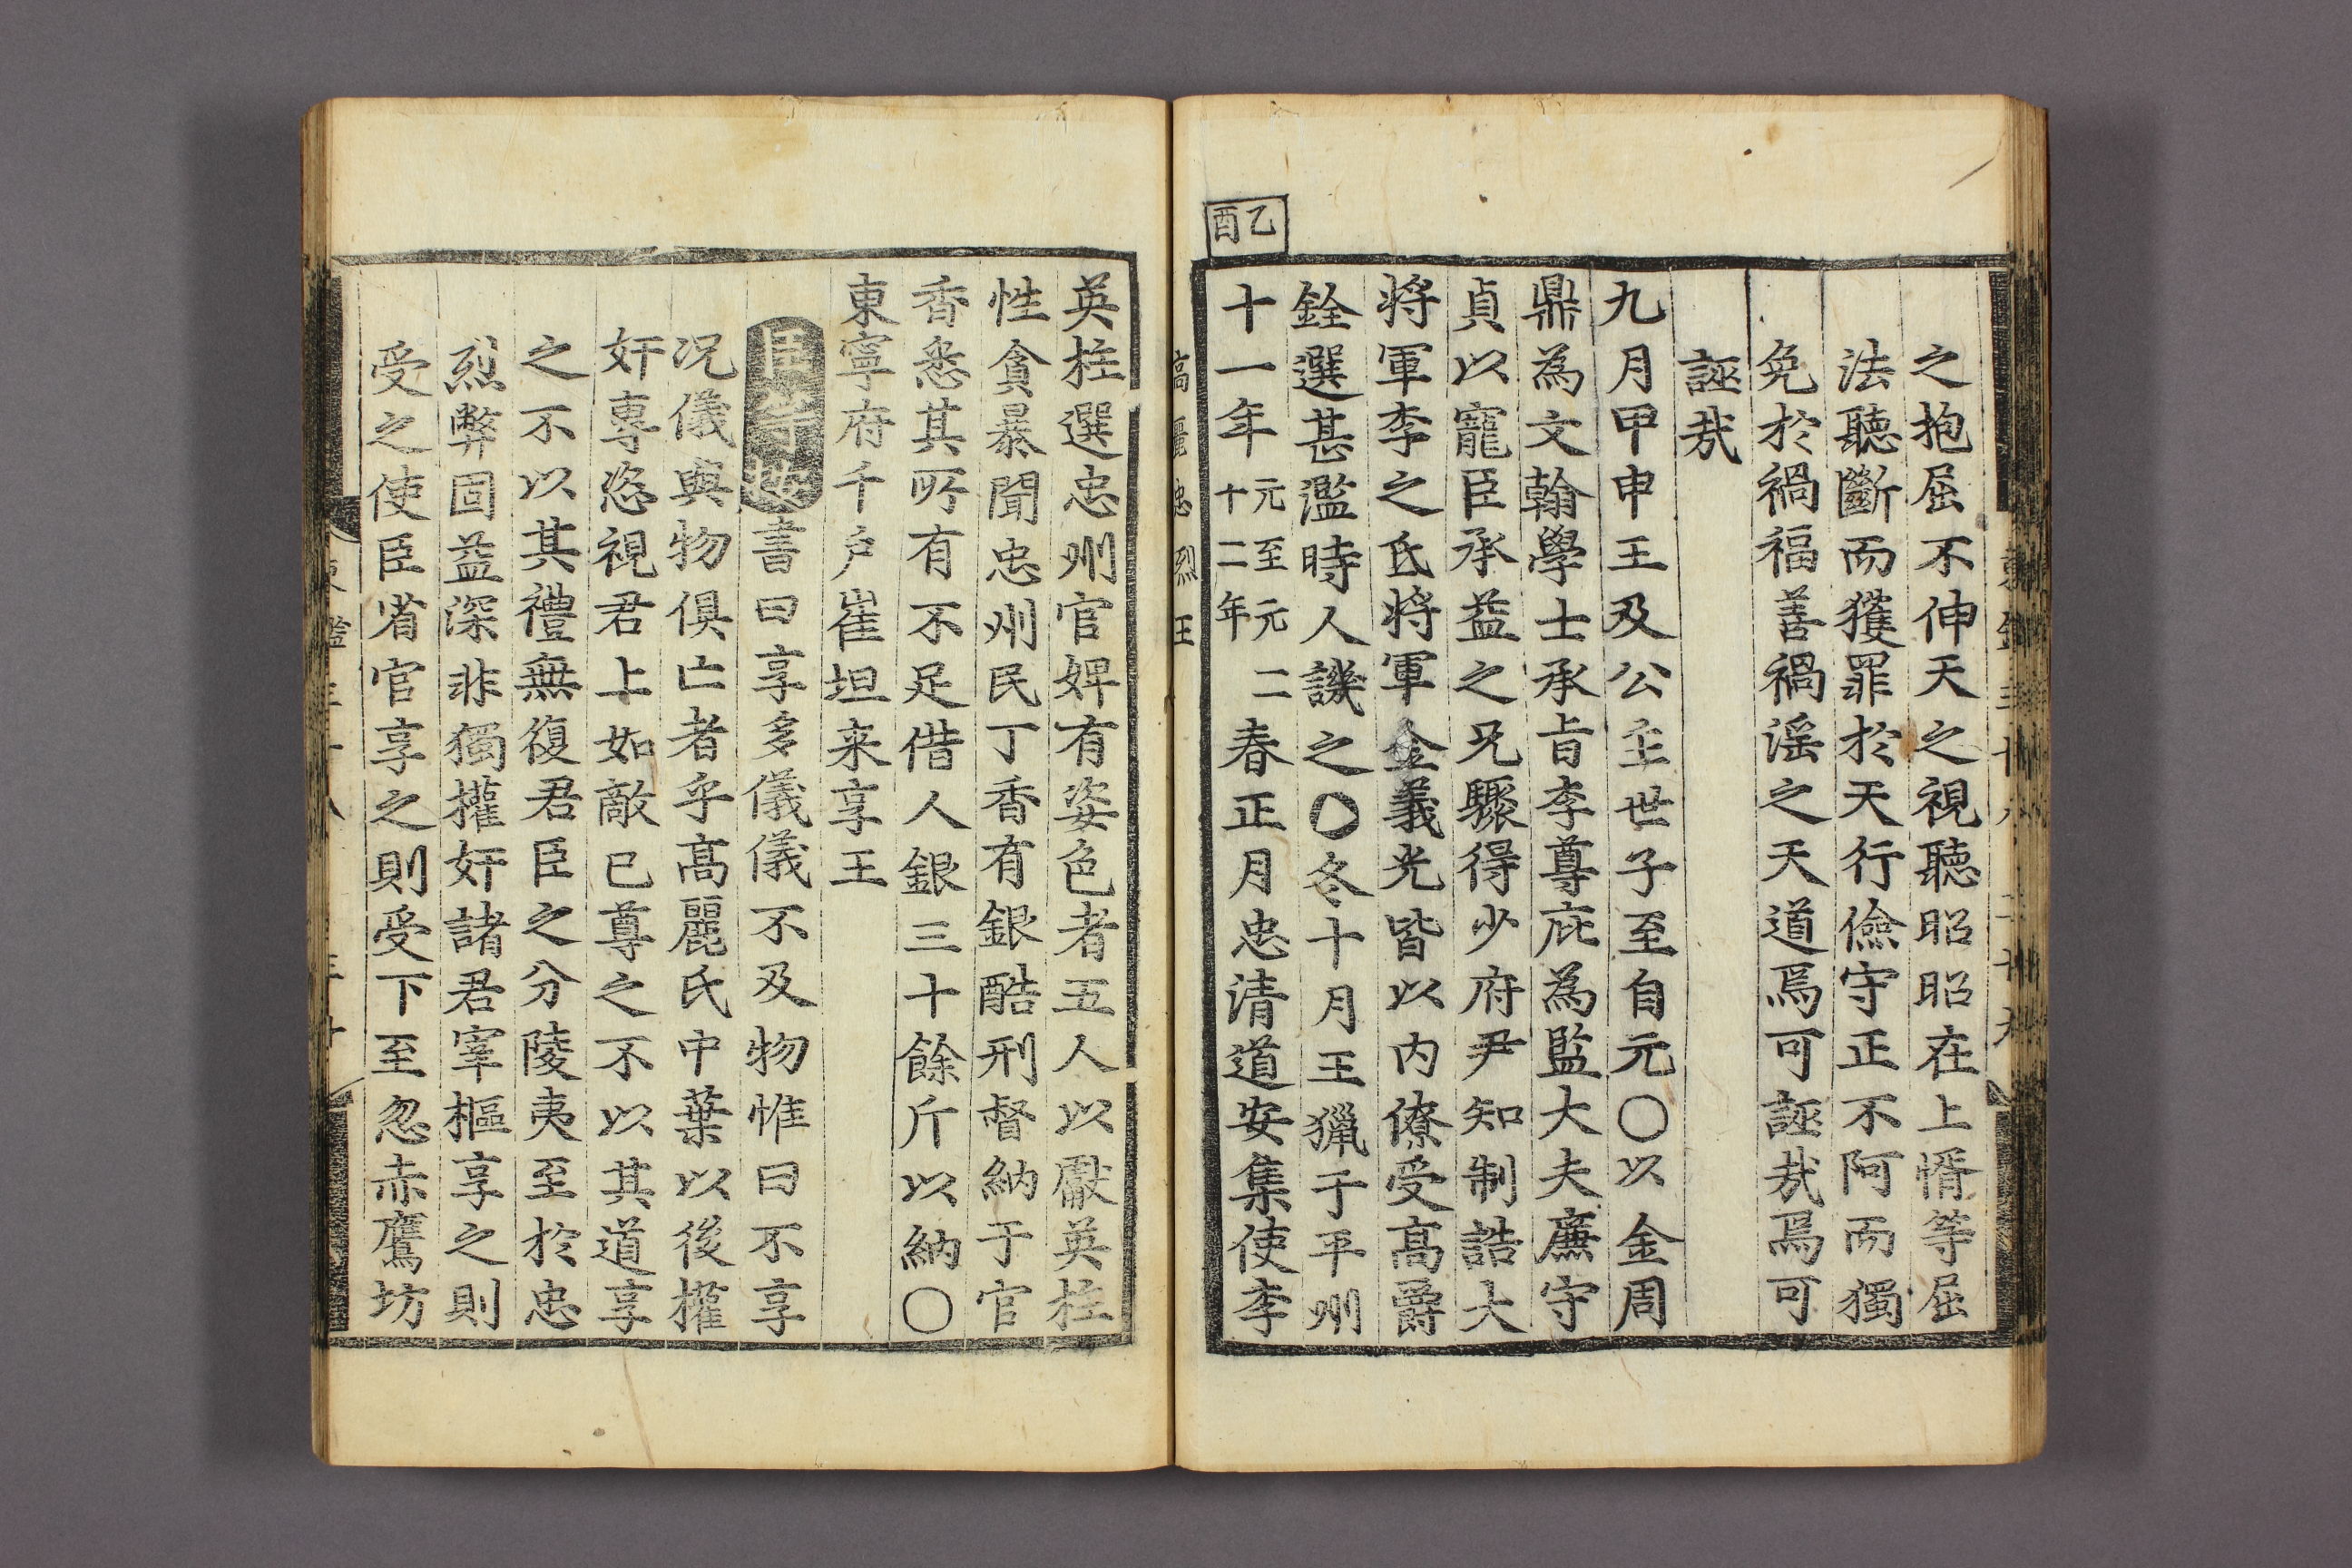 之抱屈不伸天之視聽昭昭在上惰等屈
法聽斷而獲罪於天行儉守正不阿而獨
免於禍福善禍滛之天道焉可誣㢤焉可
誣㢤
九月甲申王及公主世子至自元〇以金周
鼎為文翰學士承旨李尊庇為監大夫廉守
貞以寵臣承益之兄驟得少府尹知制誥大
將軍李之氐將軍金義光皆以内僚受高爵
銓選甚濫時人譏之〇冬十月王獵于平州
乙酉
十一年元至元二十二年春正月忠清道安集使李
高麗忠烈王
英柱選忠州官婢有姿色者五人以獻英柱
性貪暴聞忠州民丁香有銀酷刑督納于官
香悉其所有不足借人銀三十餘斤以納〇
東寧府千户崔坦来享王
臣等按書曰享多儀儀不及物惟曰不享
况儀與物俱亡者乎高麗氏中葉以後權
奸專恣視君上如敵已尊之不以其道享
之不以其禮無復君臣之分陵夷至於忠
烈弊固益深非獨權奸諸君宰樞享之則
受之使臣省官享之則受下至忽赤鷹坊